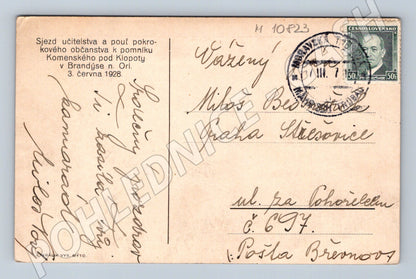 M 10823
Sjezd učitelstva a pouť pokro-
kového občanstva k pomníku
Komenského pod Klopoty
v Brandýse n. Orl.
3. června 1928.
Srdečný pozdrav
Ti zasílá
kamarád
Miloš
ČESKOSLOVENSKO
50h 50h
Vážený
Miloš
Praha Střešovice
ul. za Pohořelcem
č. 697.
Pošta Břevnov
POHLEDNICE